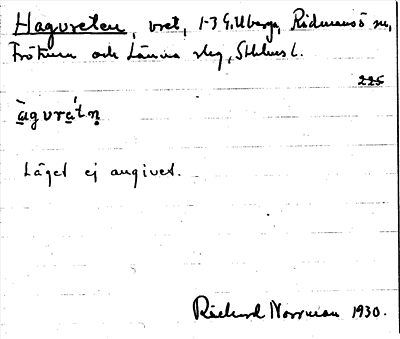 Hagvreten, vret, 1-3 G. Ubergs, Rådmansö sn,
Frötuna och Länna slg, Sthlms l.
225
àgvrát n
Läget ej angivet.
Rickard Norrman 1930.